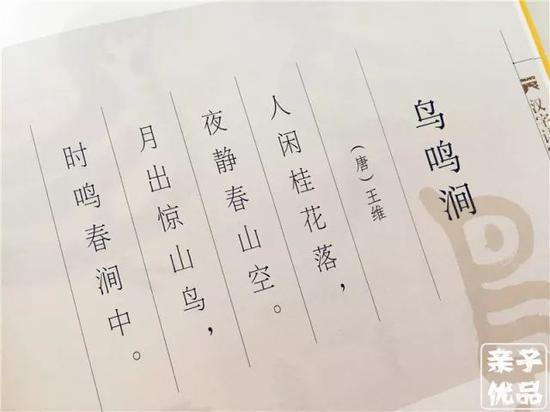 鸟鸣涧
（唐）王维
人闲桂花落，
夜静春山空。
月出惊山鸟，
时鸣春涧中。
汉字
亲子
优品